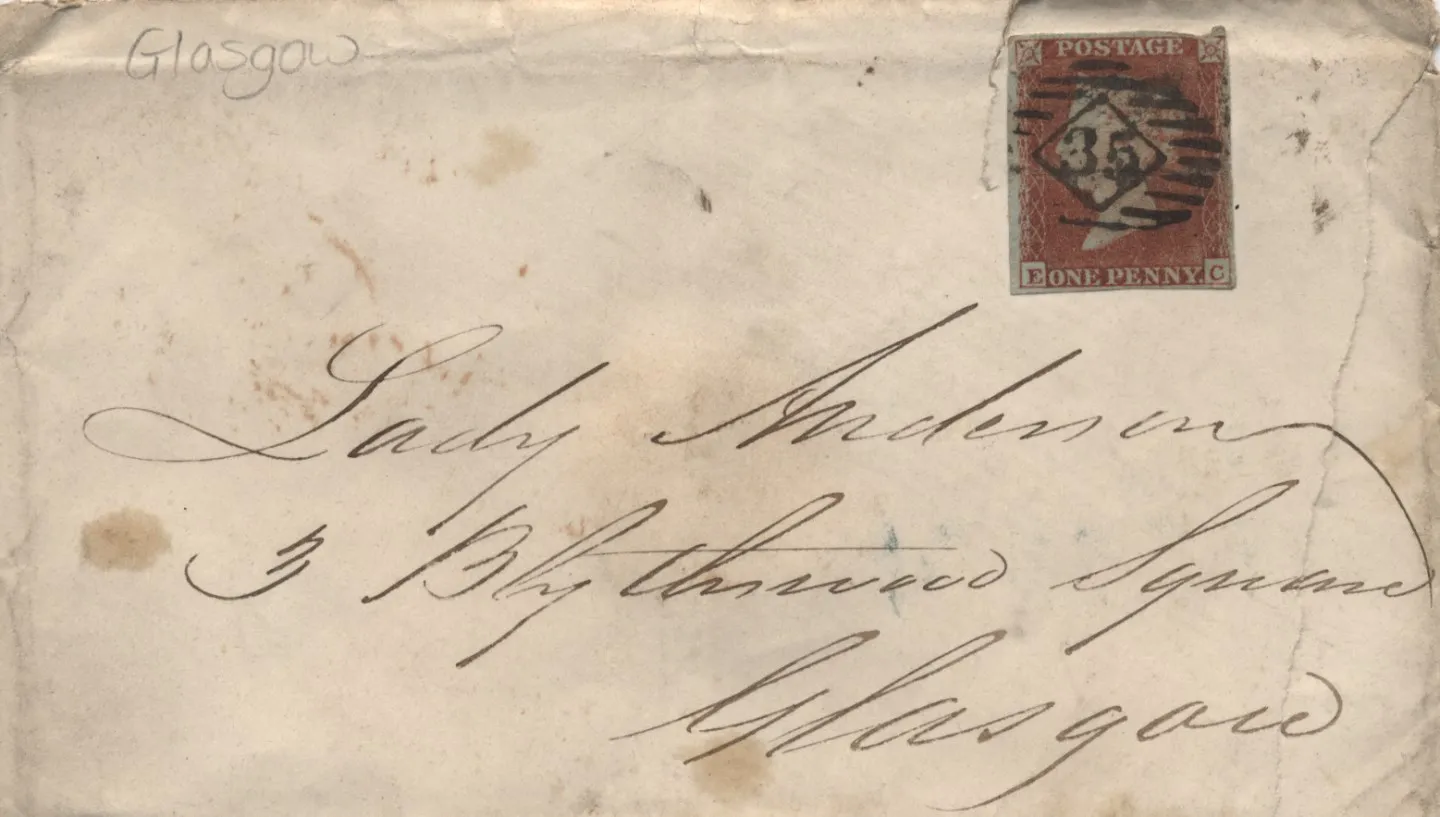 Glasgow
POSTAGE
35
E ONE PENNY. C
Lady Anderson
3 Blythswood Square
Glasgow